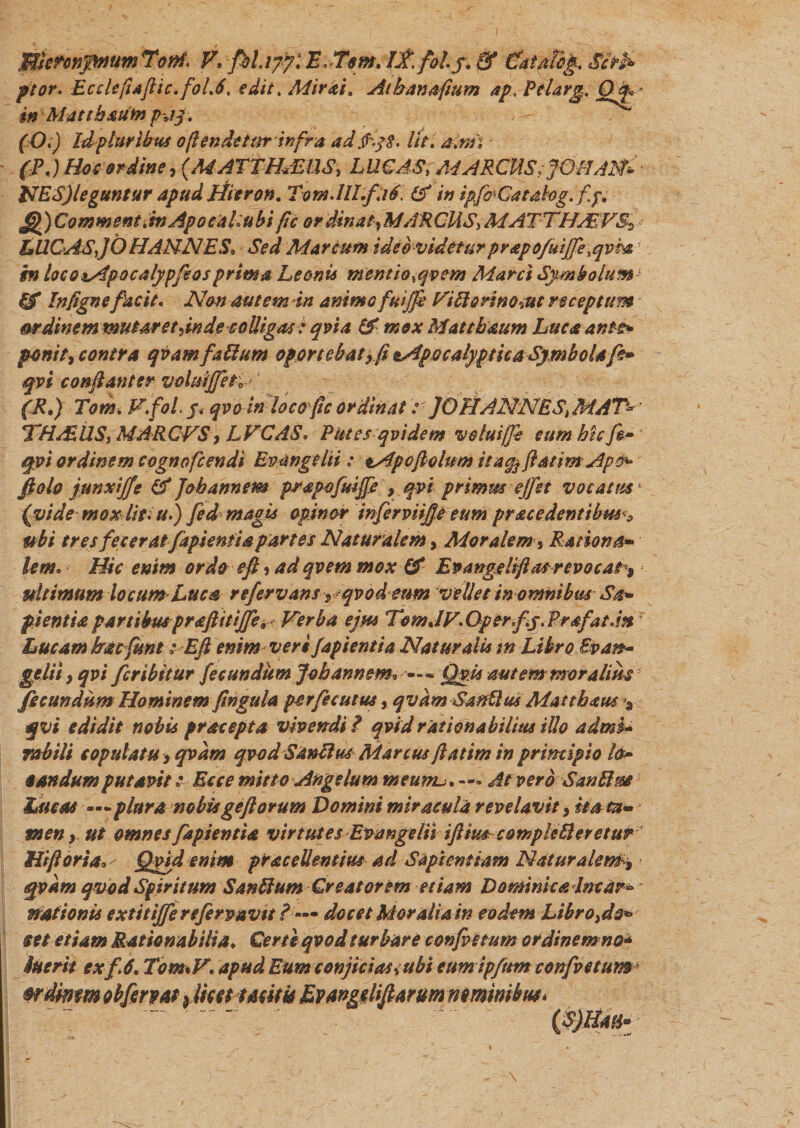 Hieronymum Tom. V. fol.177. E. Tom. IX. fol.5. & Catalog. Scri-
ptor. Ecclesiastic. fol.6. edit. Mirai. Athanasium ap. Pelarg. Qq.
in Matthæum p.13.
(O.) Id pluribus ostendetur infra ad §.38. lit. a.m.
(P.) Hoc ordine, (MATTHÆUS, LUCAS, MARCUS, JOHAN-
NES) leguntur apud Hieron. Tom.III.f.16. & in ipso Catalog. f.5.
Q) Comment. in Apocal. ubi sic ordinat, MARCUS, MATTHÆVS,
LUCAS, JOHANNES. Sed Marcum ideò videtur præposuisse, qvia
in loco Apocalypseos prima Leonis mentio, qvem Marci Symbolum
& Insigne facit. Non autem in animo fuisse Victorino, ut receptum
ordinem mutaret, inde colligas: qvia & mox Matthæum Luca ante-
ponit, contra qvam factum oportebat, si Apocalyptica Symbola se-
qvi constanter voluisset.
(R.) Tom. V. fol. 5. qvo in loco sic ordinat: JOHANNES, MAT-
THÆUS, MARCVS, LVCAS. Putes qvidem voluisse eum hîc se-
qvi ordinem cognoscendi Evangelii: Apostolum itaq; statim Apo-
stolo junxisse & Johannem præposuisse, qvi primus esset vocatus
(vide mox lit. u.) sed magis opinor inserviisse eum præcedentibus,
ubi tres fecerat sapientia partes Naturalem, Moralem, Rationa-
lem. Hic enim ordo est, ad qvem mox & Evangelistas revocat,
ultimum locum Luca reservans, qvod eum vellet in omnibus Sa-
pientia partibus præstitisse. Verba ejus Tom.IV. Oper.f.5. Præfat. in
Lucam hæc sunt: Est enim verè sapientia Naturalis in Libro Evan-
gelii, qvi scribitur secundùm Johannem. --- Qvis autem moraliùs
secundùm Hominem singula persecutus, qvàm Sanctus Matthæus,
qvi edidit nobis præcepta vivendi? qvid rationabilius illo admi-
rabili copulatu, qvàm qvod Sanctus Marcus statim in principio lo-
candum putavit: Ecce mitto Angelum meum. --- At verò Sanctus
Lucas --- plura nobis gestorum Domini miracula revelavit, ita ta-
men, ut omnes sapientia virtutes Evangelii istius complecteretur
Historia. Qvid enim præcellentius ad Sapientiam Naturalem,
qvàm qvod Spiritum Sanctum Creatorem etiam Dominica Incar-
nationis extitisse reservavit? --- docet Moralia in eodem Libro, do-
cet etiam Rationabilia. Certè qvod turbare consvetum ordinem no-
luerit ex f.6. Tom. V. apud Eum conjicias, ubi eum ipsum consvetum
ordinem observat, licet tacitis Evangelistarum nominibus.
(S) Hau-